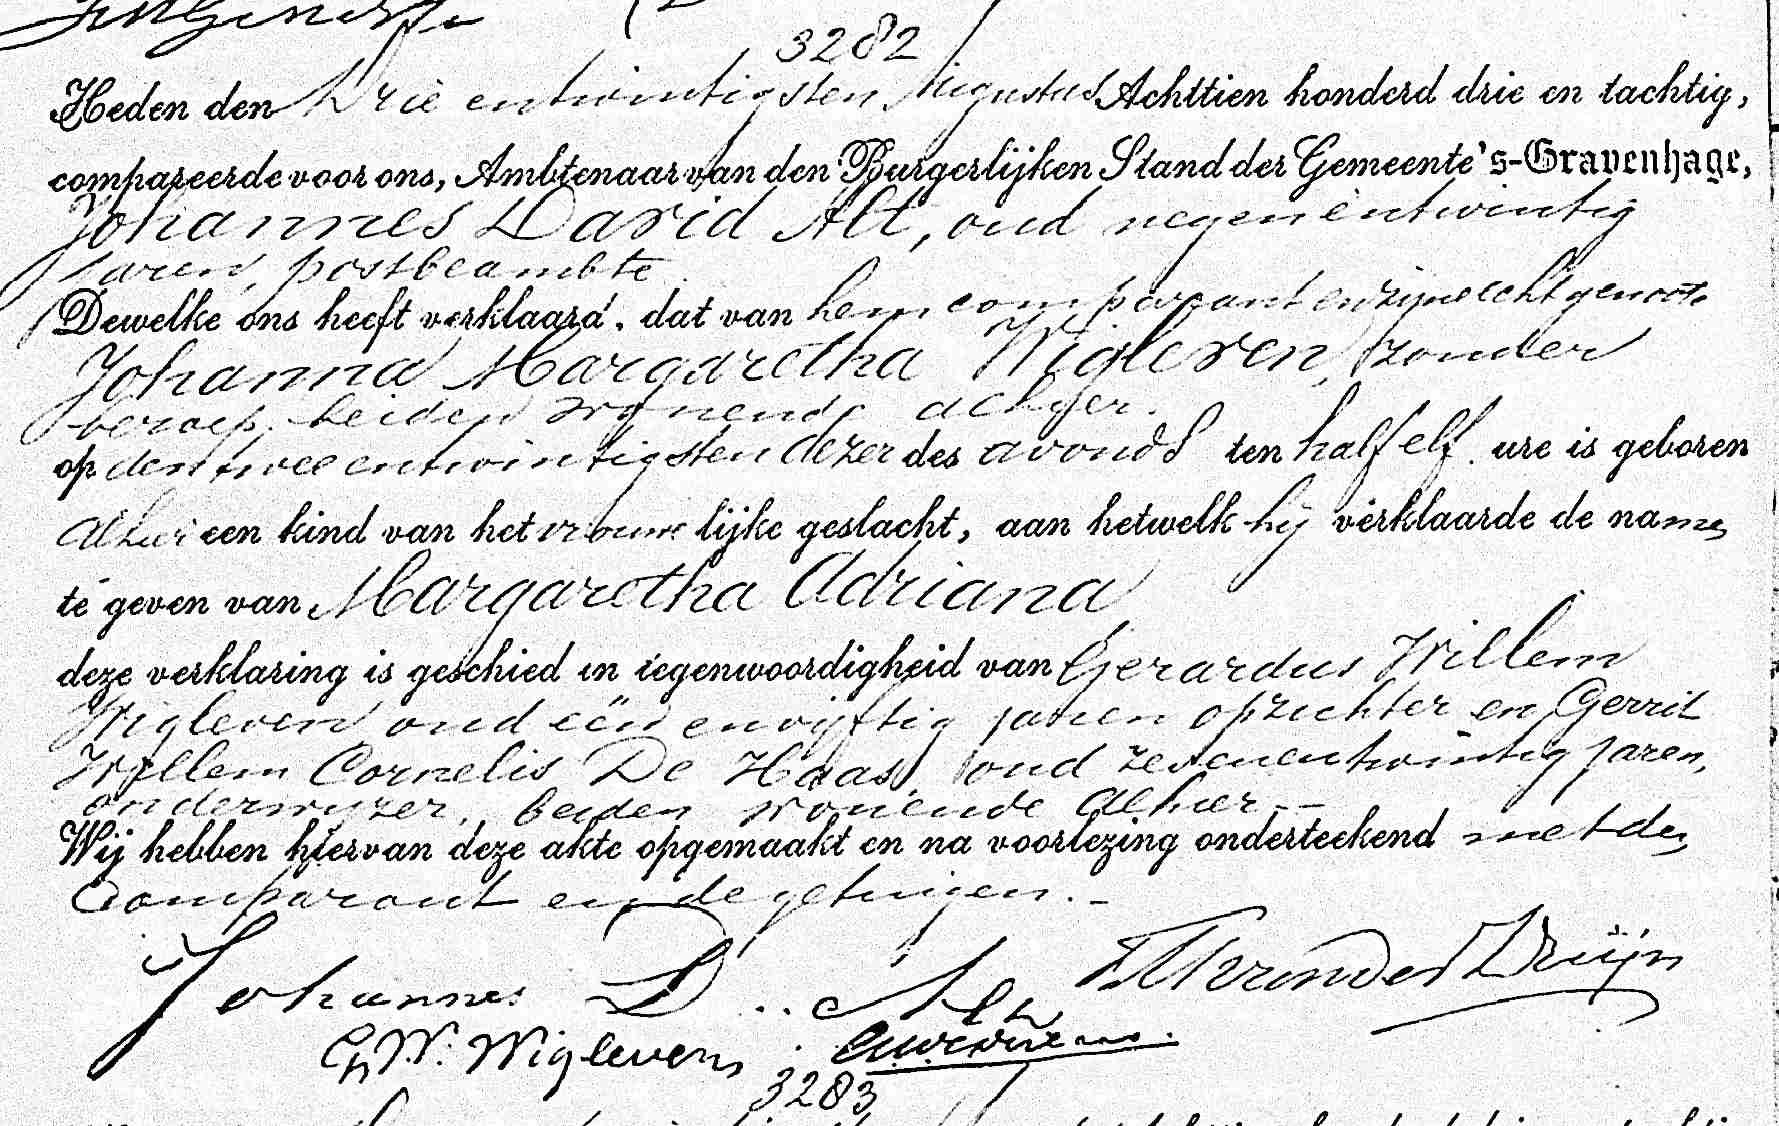 3282
Heden den Drie entwintigsten Augustus Achttien honderd drie en tachtig,
compareerde voor ons, Ambtenaar van den Burgerlijken Stand der Gemeente 's-Gravenhage,
Johannes David Alt, oud negenentwintig
jaren, postbeambte
Dewelke ons heeft verklaard, dat van hem comparant en zijne echtgenoote
Johanna Margaretha Wigleven, zonder
beroep, beiden wonende alhier.
op den tweeentwintigsten dezer des avonds ten half elf ure is geboren
alhier een kind van het vrouwelijke geslacht, aan hetwelk hij verklaarde de namen
te geven van Margaretha Adriana
deze verklaring is geschied in tegenwoordigheid van Gerardus Willem
Wigleven oud eenenvijftig jaren opzichter en Gerrit
Willem Cornelis De Haas, oud zevenentwintig jaren,
onderwijzer, beiden wonende alhier.-
Wij hebben hiervan deze akte opgemaakt en na voorlezing onderteekend met den
Comparant en de getuigen.-
Johannes D. Alt
G. W. Wigleven
3283